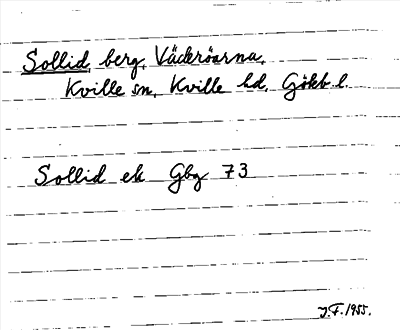 Sollid, berg, Väderöarna,
Kville sn, Kville hd, Göteb. l.
Sollid ek Gbg 73
J.F. 1955.